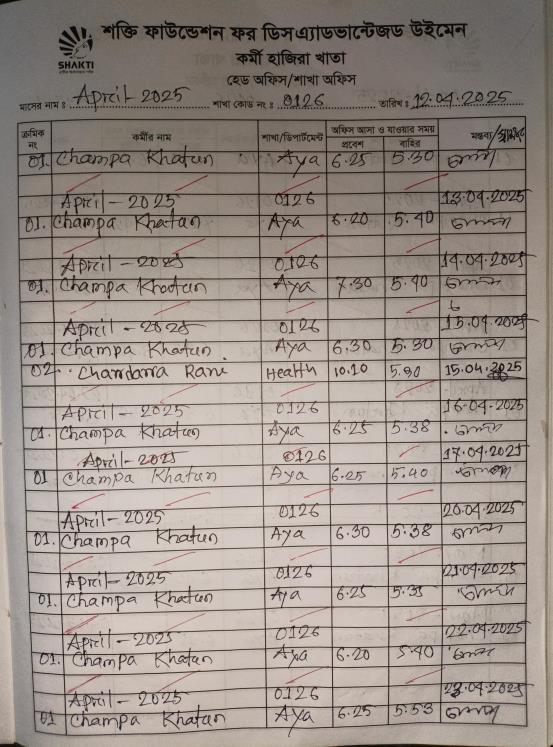 শক্তি ফাউন্ডেশন ফর ডিসএ্যাডভান্টেজড উইমেন
SHAKTI
কর্মী হাজিরা খাতা
হেড অফিস/শাখা অফিস
মাসের নাম : April-2025 শাখা কোড নং : 0126 তারিখ : 12.04.2025
ক্রমিক নং কর্মীর নাম শাখা/ডিপার্টমেন্ট অফিস আসা ও যাওয়ার সময় প্রবেশ বাহির মন্তব্য/স্বাক্ষর
01. Champa Khatun Aya 6.25 5.30 চম্পা
April-2025 0126 13.04.2025
01. Champa Khatun Aya 6.20 5.40 চম্পা
April-2025 0126 14.04.2025
01. Champa Khatun Aya 7.30 5.40 চম্পা
April-2025 0126 15.04.2025
01. Champa Khatun Aya 6.30 5.30 চম্পা
02. Chandana Rani Health 10.10 5.90 15.04.2025
April-2025 0126 16.04.2025
01. Champa Khatun Aya 6.25 5.38 চম্পা
April-2025 0126 17.04.2025
01 Champa Khatun Aya 6.25 5.40 চম্পা
April-2025 0126 20.04.2025
01. Champa Khatun Aya 6.30 5.38 চম্পা
April-2025 0126 21.04.2025
01. Champa Khatun Aya 6.25 5.35 চম্পা
April-2025 0126 22.04.2025
01. Champa Khatun Aya 6.20 5.40 চম্পা
April-2025 0126 23.04.2025
01 Champa Khatun Aya 6.25 5.53 চম্পা